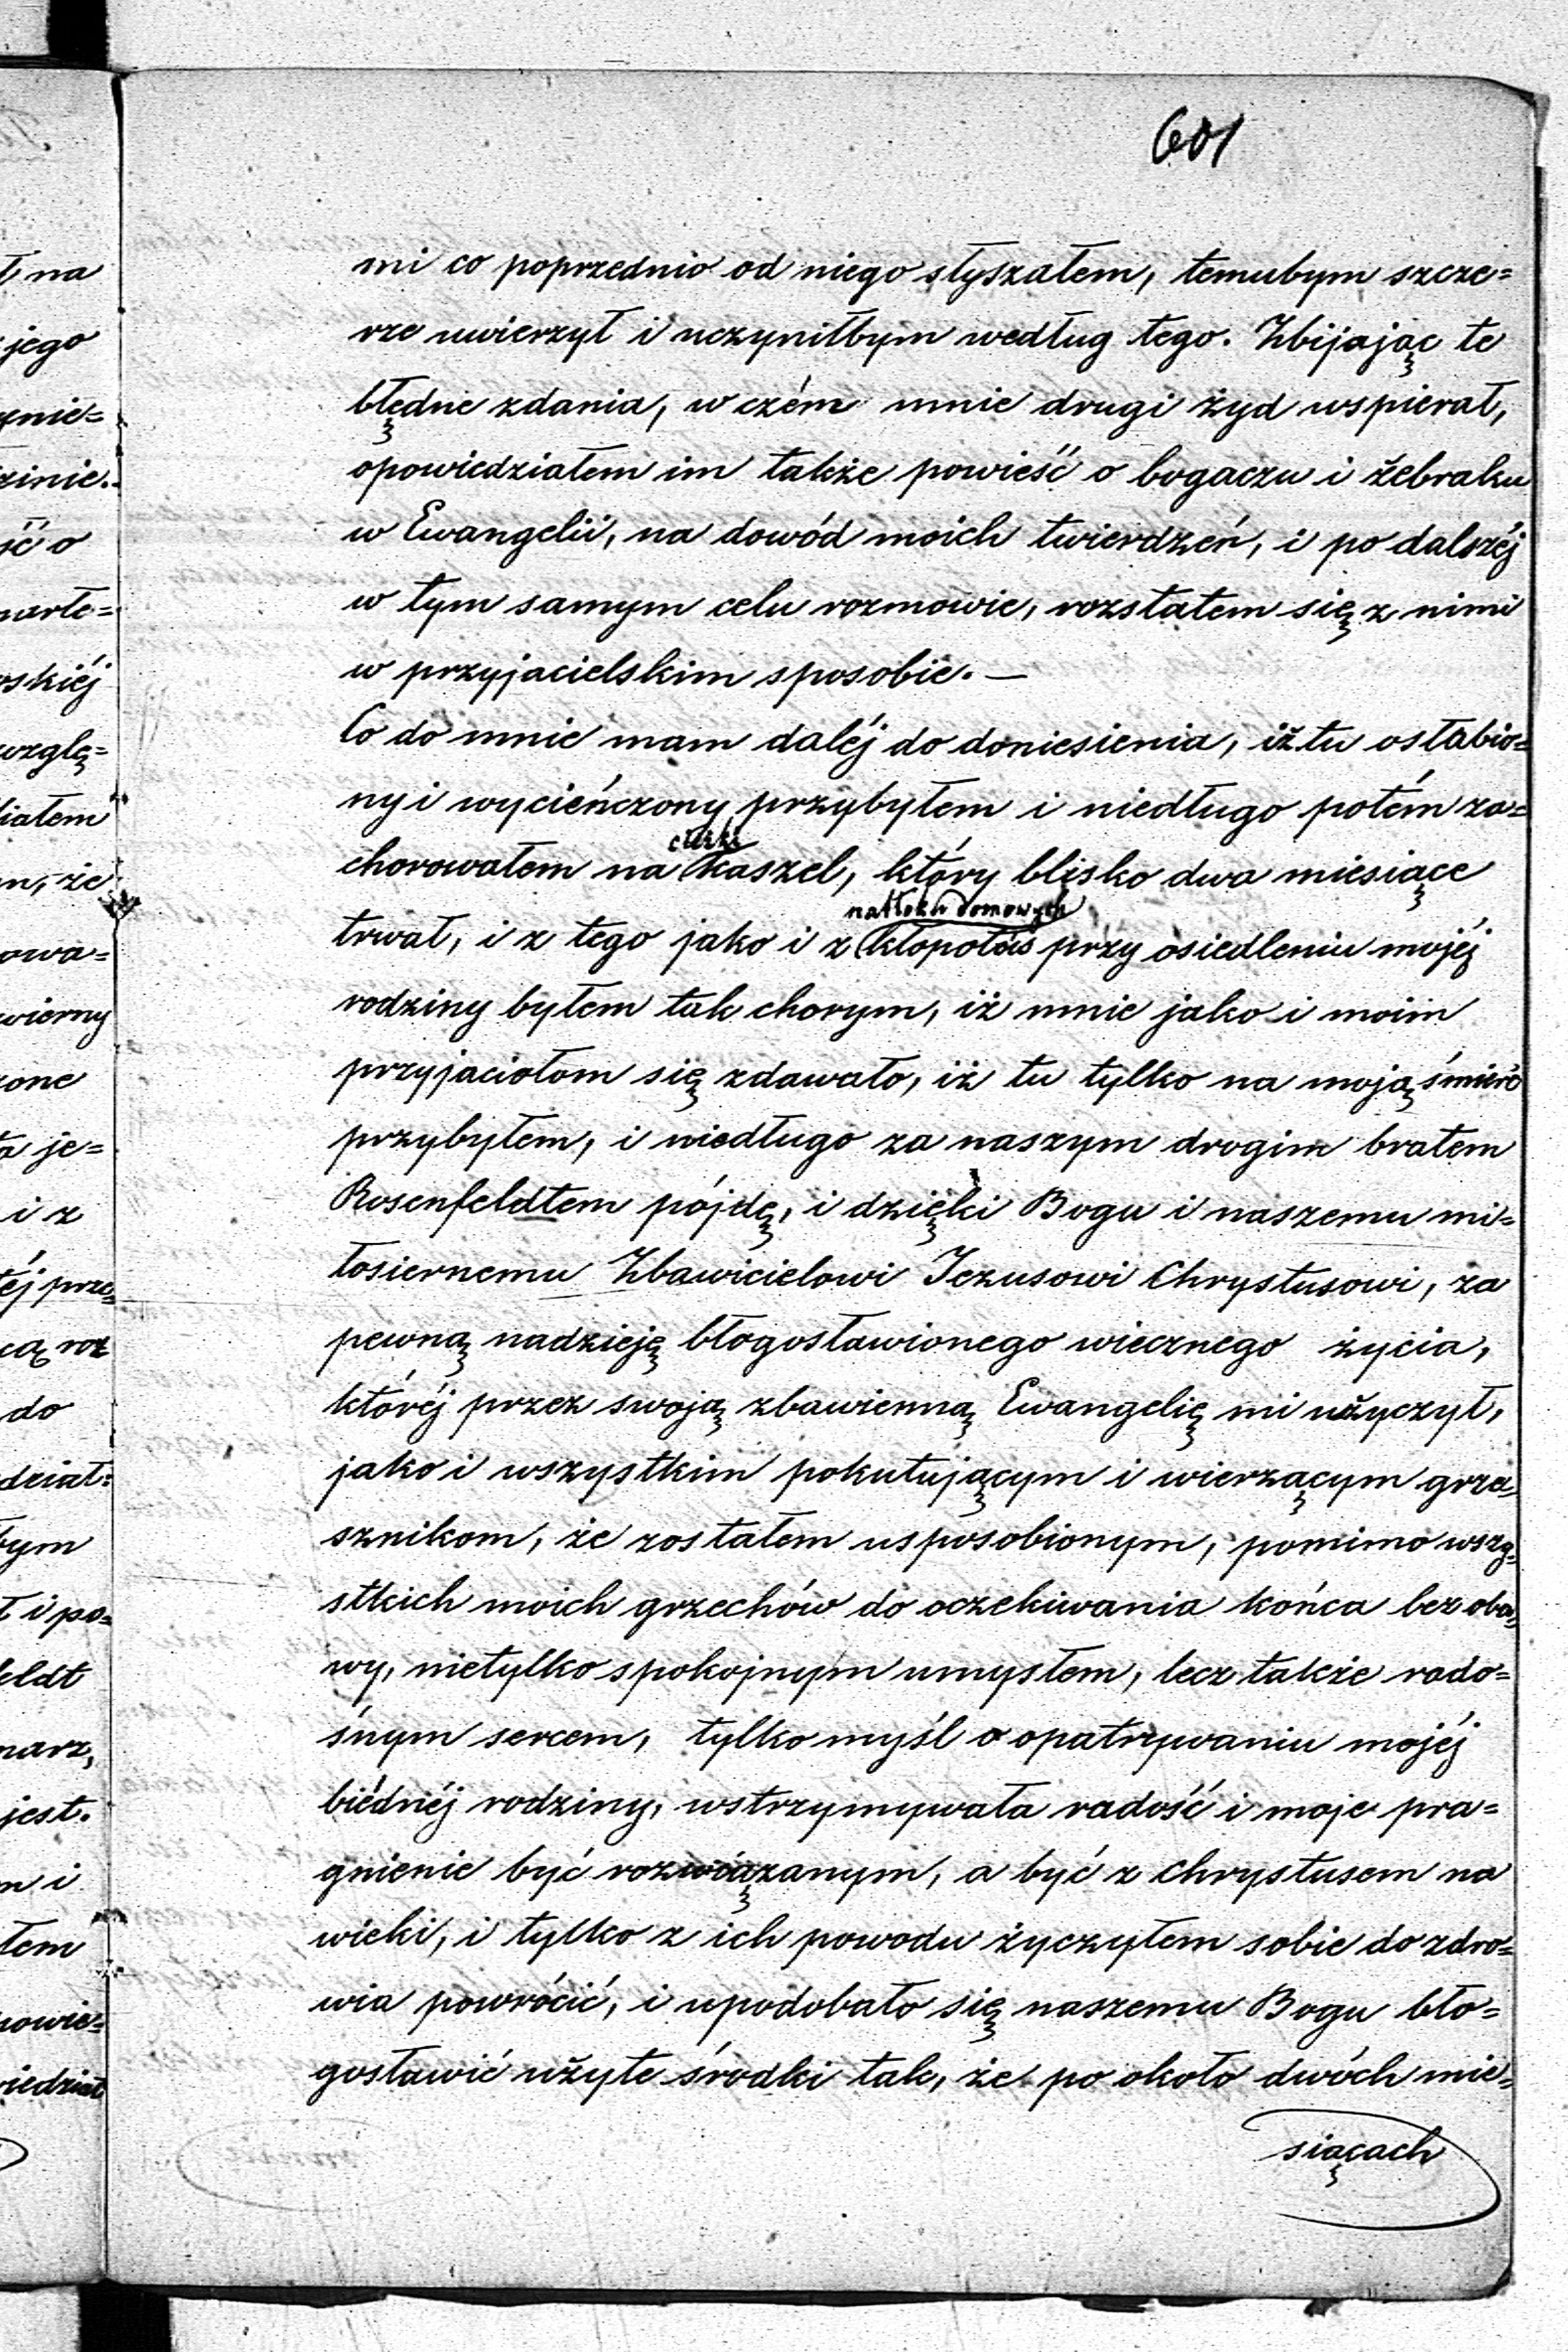 601
mi co poprzednio od niego słyszałem, temubym szcze=
rze uwierzył i uczyniłbym według tego. Zbijając te
błędne zdania, w czém mnie drugi żyd wspierał,
opowiedziałem im także powieść o bogaczu i żebraku
w Ewangelii, na dowód moich twierdzeń, i po dalszéj
w tym samym celu rozmowie, rozstałem się z nimi
w przyjacielskim sposobie. —
Co do mnie mam daléj do doniesienia, iż tu osłabio=
ny i wycieńczony przybyłem i niedługo potém za=
ciężki
chorowałem na kaszel, który blisko dwa miesiące
natłoku domowych
trwał, i z tego jako i z kłopotów przy osiedleniu mojéj
rodziny byłem tak chorym, iż mnie jako i moim
przyjaciołom się zdawało, iż tu tylko na moją śmierć
przybyłem, i niedługo za naszym drogim bratem
Rosenfeldtem pójdę, i dzięki Bogu i naszemu mi=
łosiernemu Zbawicielowi Jezusowi Chrystusowi, za
pewną nadzieję błogosławionego wiecznego życia,
któréj przez swoją zbawienną Ewangelię mi użyczył,
jako i wszystkim pokutującym i wierzącym grze=
sznikom, że zostałem usposobionym, pomimo wszy=
stkich moich grzechów do oczekiwania końca bez oba=
wy, nietylko spokojnym umysłem, lecz także rado=
śnym sercem, tylko myśl o opatrywaniu mojéj
biédnéj rodziny, wstrzymywała radość i moje pra=
gnienie być rozwiązanym, a być z Chrystusem na
wieki, i tylko z ich powodu życzyłem sobie do zdro=
wia powrócić, i upodobało się naszemu Bogu bło=
gosławić użyte środki tak, że po około dwóch mie=
siącach
ł na
jego
ynie=
zinie.
ść o
marłe=
oskiéj
wzglę=
działem
m, że
owa=
wierny
zone
ta je=
i z
téj prze=
cą roz
do
dział=
bym
ł i po=
feldt
marz,
jest.
m i
łem
powie=
wiedział